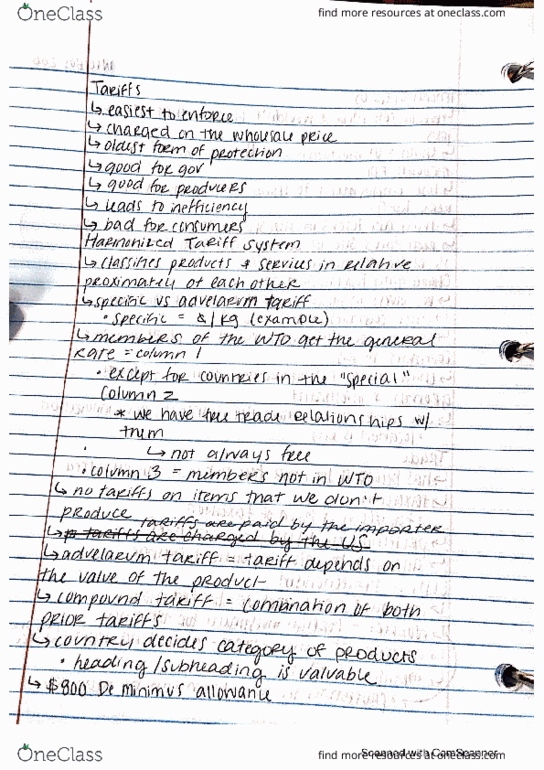 OneClass
find more resources at oneclass.com
Tariffs
↳ easiest to enforce
↳ charged on the wholesale price
↳ oldest form of protection
↳ good for gov
↳ good for producers
↳ leads to inefficiency
↳ bad for consumers
Harmonized Tariff System
↳ classifies products & services in relative
proximately of each other
↳ specific vs advelarum tariff
• specific = $/kg (example)
↳ members of the WTO get the general
rate = column 1
• except for countries in the "special"
column 2
* we have free trade relationships w/
them
↳ not always free
• column 3 = members not in WTO
↳ no tariffs on items that we don't
produce
tariffs are paid by the importer
↳ tariffs are charged by the US
↳ advelarum tariff = tariff depends on
the value of the product
↳ compound tariff = combination of both
prior tariffs
↳ country decides category of products
• heading/subheading is valuable
↳ $800 De Minimus allowance
OneClass
find more resources at oneclass.com
Scanned with CamScanner